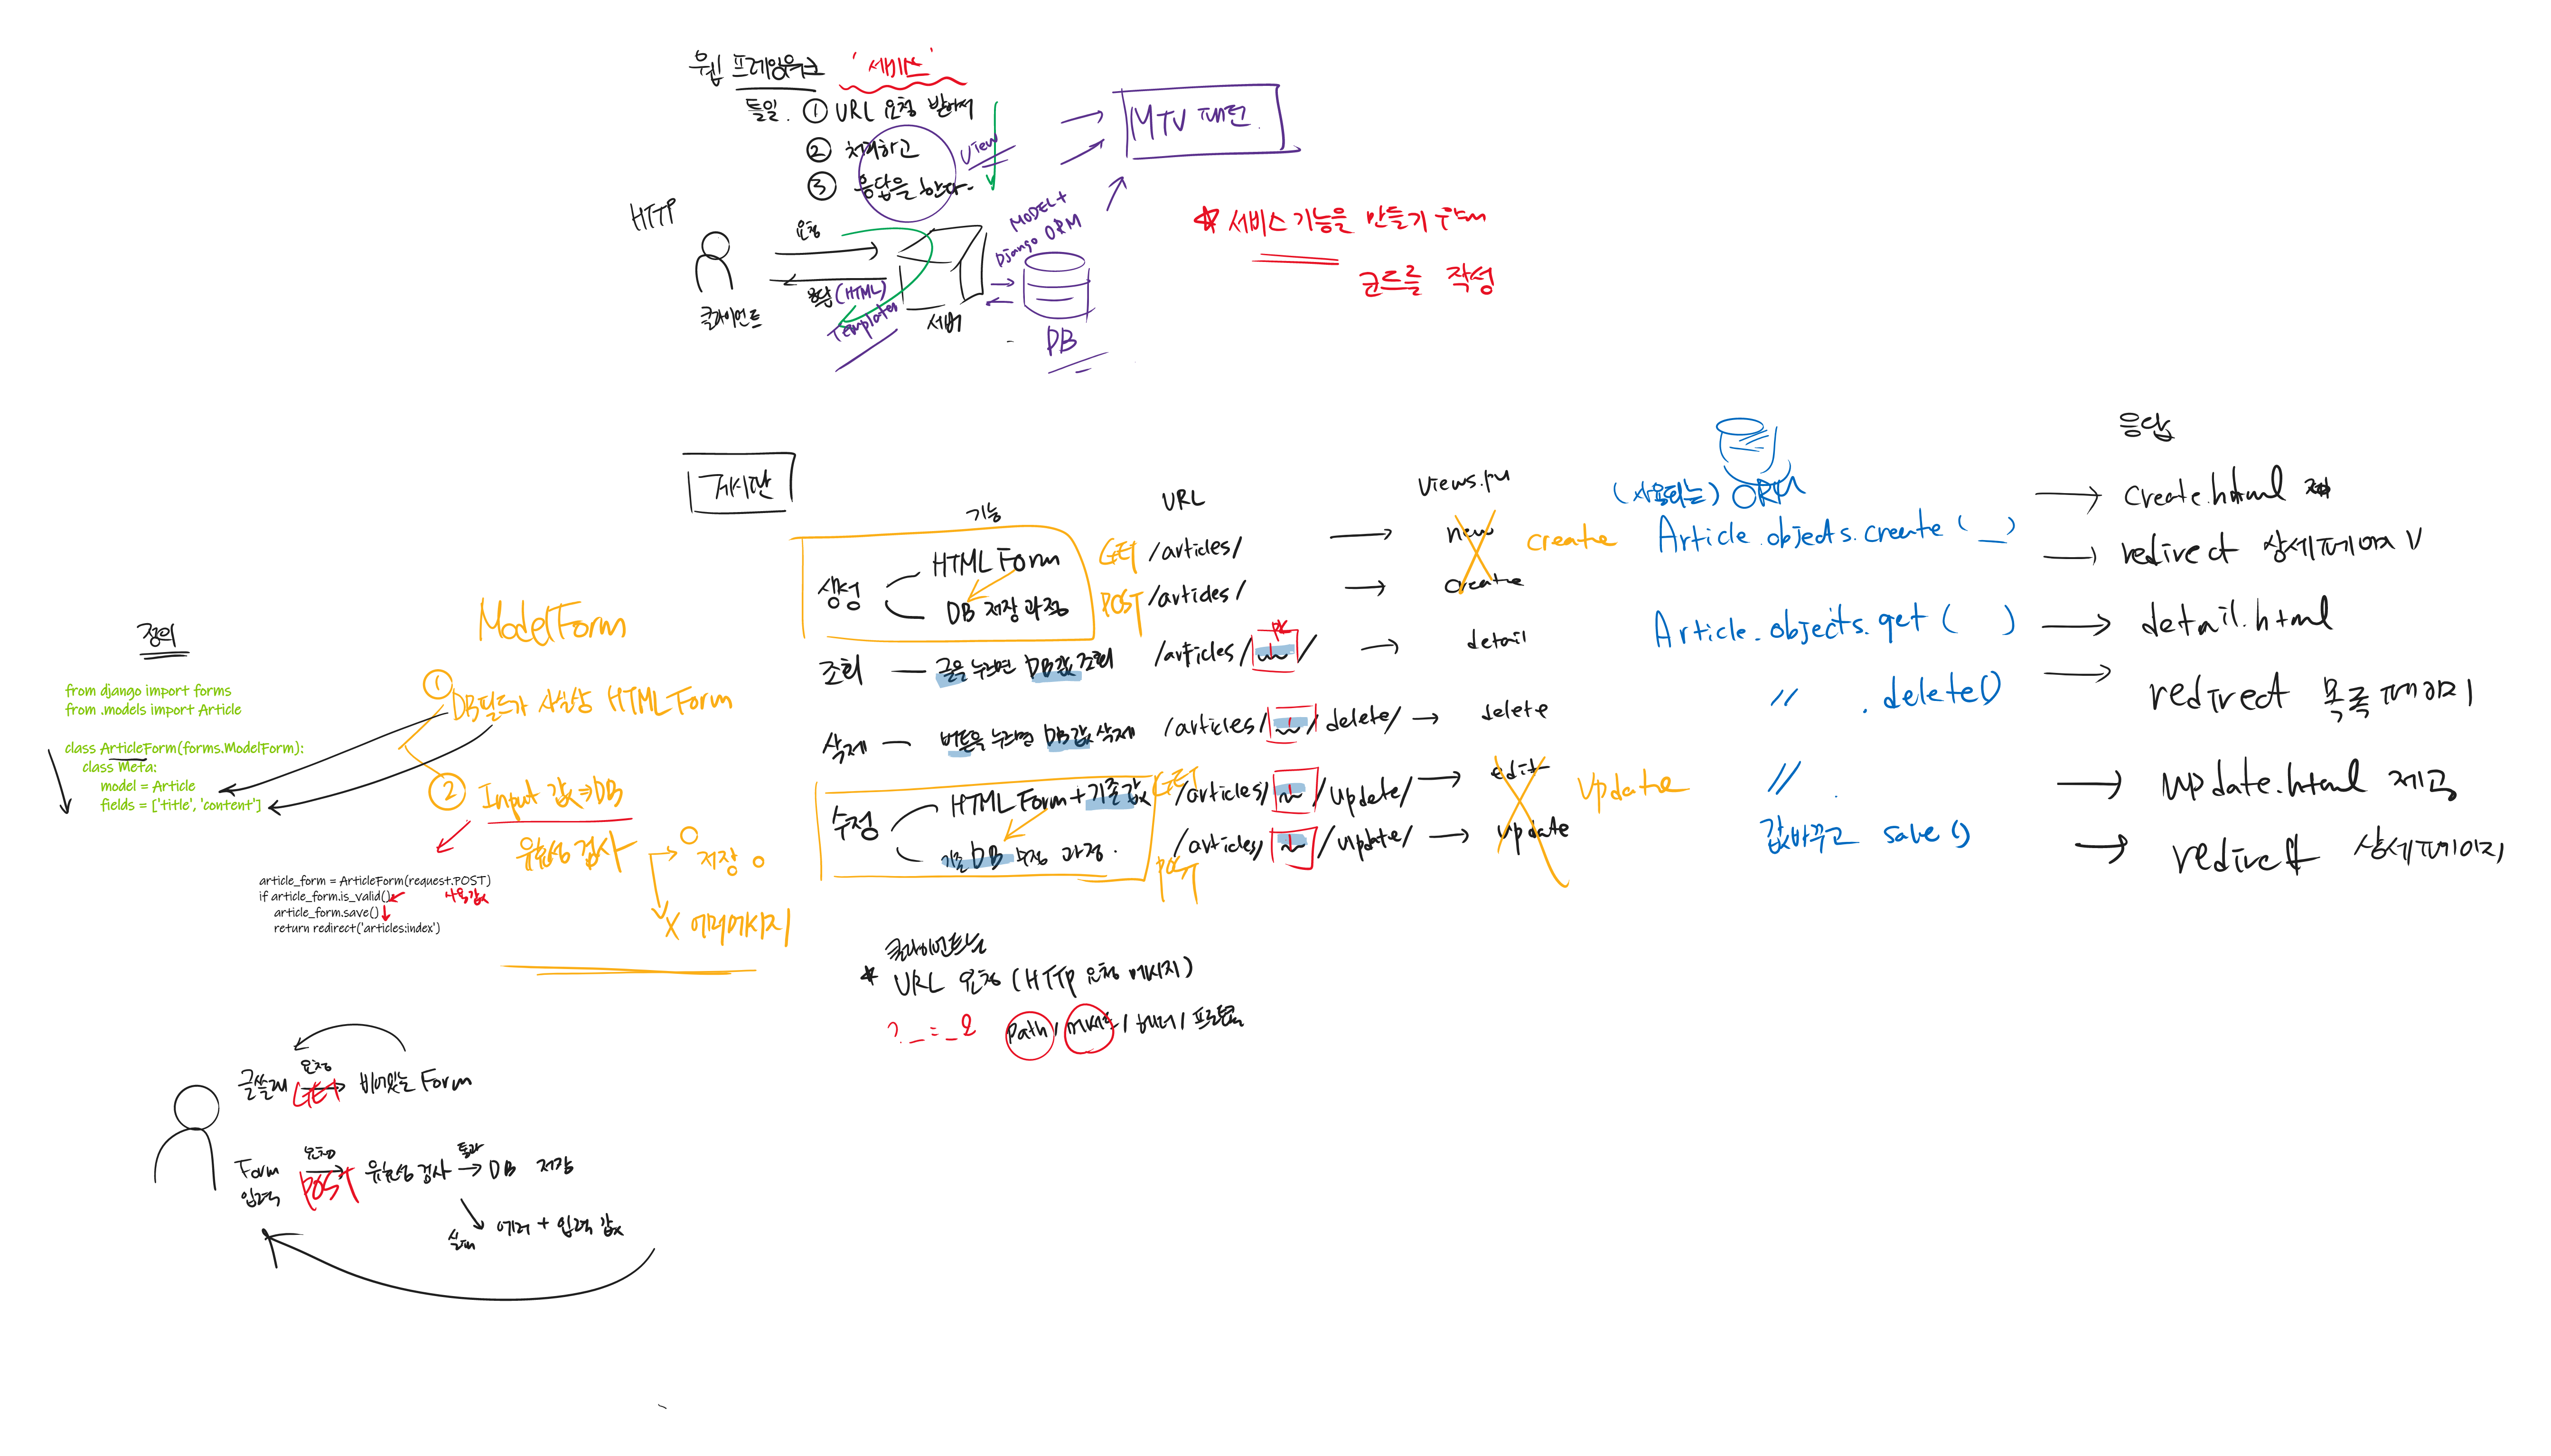 웹 프레임워크 '서비스'
들일. ① URL 요청 받아서
② 처리하고
③ 응답을 한다.
View
MTV 패턴
HTTP
요청
응답 (HTML)
Templates
클라이언트
서버
MODEL +
Django ORM
DB
* 서비스 기능을 만들기 위해
코드를 작성
게시판
기능
URL
views.py
(사용되는) ORM
응답
생성
HTML Form
GET /articles/
new
create
Article.objects.create( _ )
create.html
DB 저장 과정
POST /articles/
create
redirect 상세페이지
조회 — 글을 누르면 DB값 조회
/articles/ pk /
detail
Article.objects.get( )
detail.html
삭제 — 버튼을 누르면 DB값 삭제
/articles/ /delete/
delete
" .delete()
redirect 목록 페이지
수정
HTML Form + 기존값
GET /articles/ /update/
edit
update
"
update.html 제공
기존 DB 수정 과정.
POST /articles/ /update/
update
값바꾸고 save()
redirect 상세페이지
정의
from django import forms
from .models import Article
class ArticleForm(forms.ModelForm):
class Meta:
model = Article
fields = ['title', 'content']
ModelForm
① DB필드가 사실상 HTML Form
② Input 값 ⇒ DB
유효성 검사
O 저장
X 에러메시지
article_form = ArticleForm(request.POST)
if article_form.is_valid()
사용값
article_form.save()
return redirect('articles:index')
클라이언트는
* URL 요청 (HTTP 요청 메시지)
? _ = _ &
path / 메서드 / 헤더 / 프로토콜
글쓸래
요청
GET
비어있는 Form
Form
입력
요청
POST
유효성 검사
통과
DB 저장
실패
에러 + 입력 값